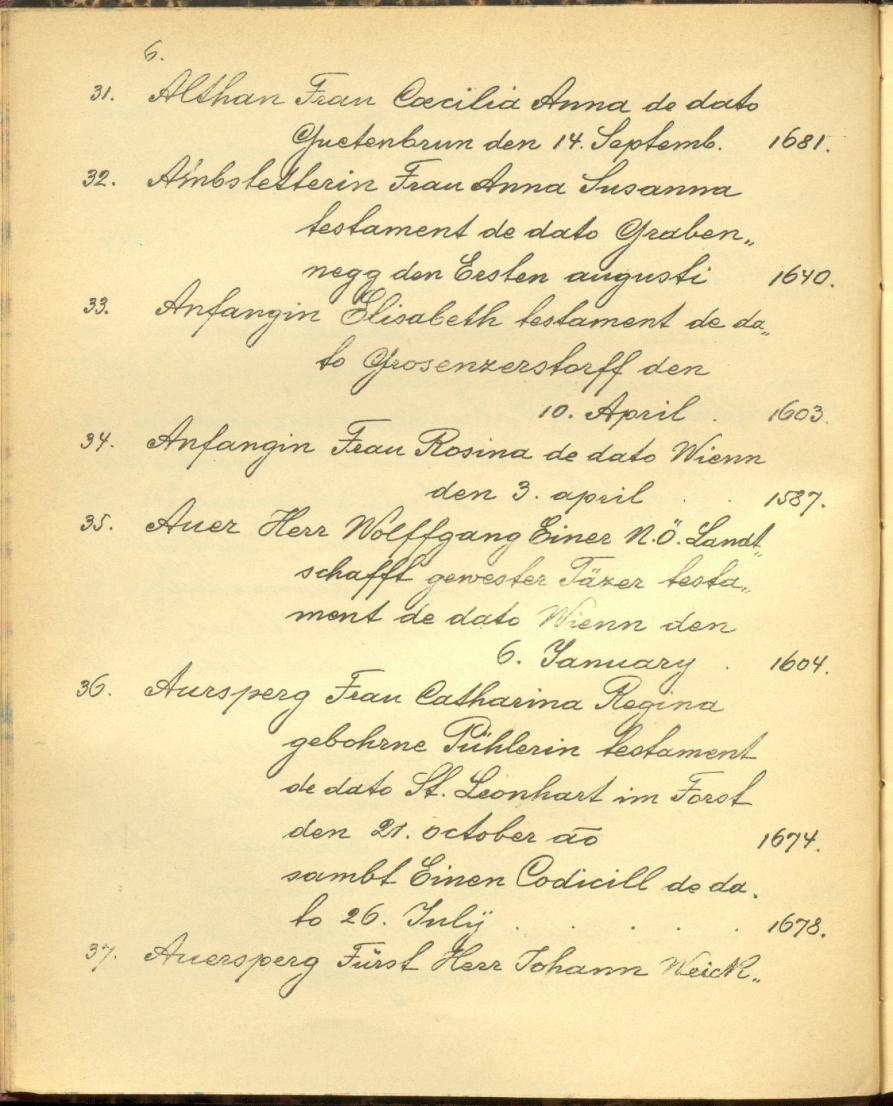 6.
31. Althan Frau Cœcilia Anna de dato
Guetenbrun den 14. Septemb. 1681.
32. Ambstetterin Frau Anna Susanna
testament de dato Graben„
negg den Ersten augusti 1640.
33. Anfangin Elisabeth testament de da„
to Grosenzerstorff den
10. April . 1603.
34. Anfangin Frau Rosina de dato Wienn
den 3. april . . 1587.
35. Auer Herr Wolffgang Einer N.Ö. Landt„
schafft gewester Täzer testa„
ment de dato Wienn den
6. Ianuary . 1604.
36. Aursperg Frau Catharina Regina
gebohrne Pühlerin testament
de dato St. Leonhart im Forst
den 21. october ao 1674.
sambt Einen Codicill de da„
to 26. Iulÿ . . . . . 1678.
37. Auersperg Fürst Herr Iohann Weick„